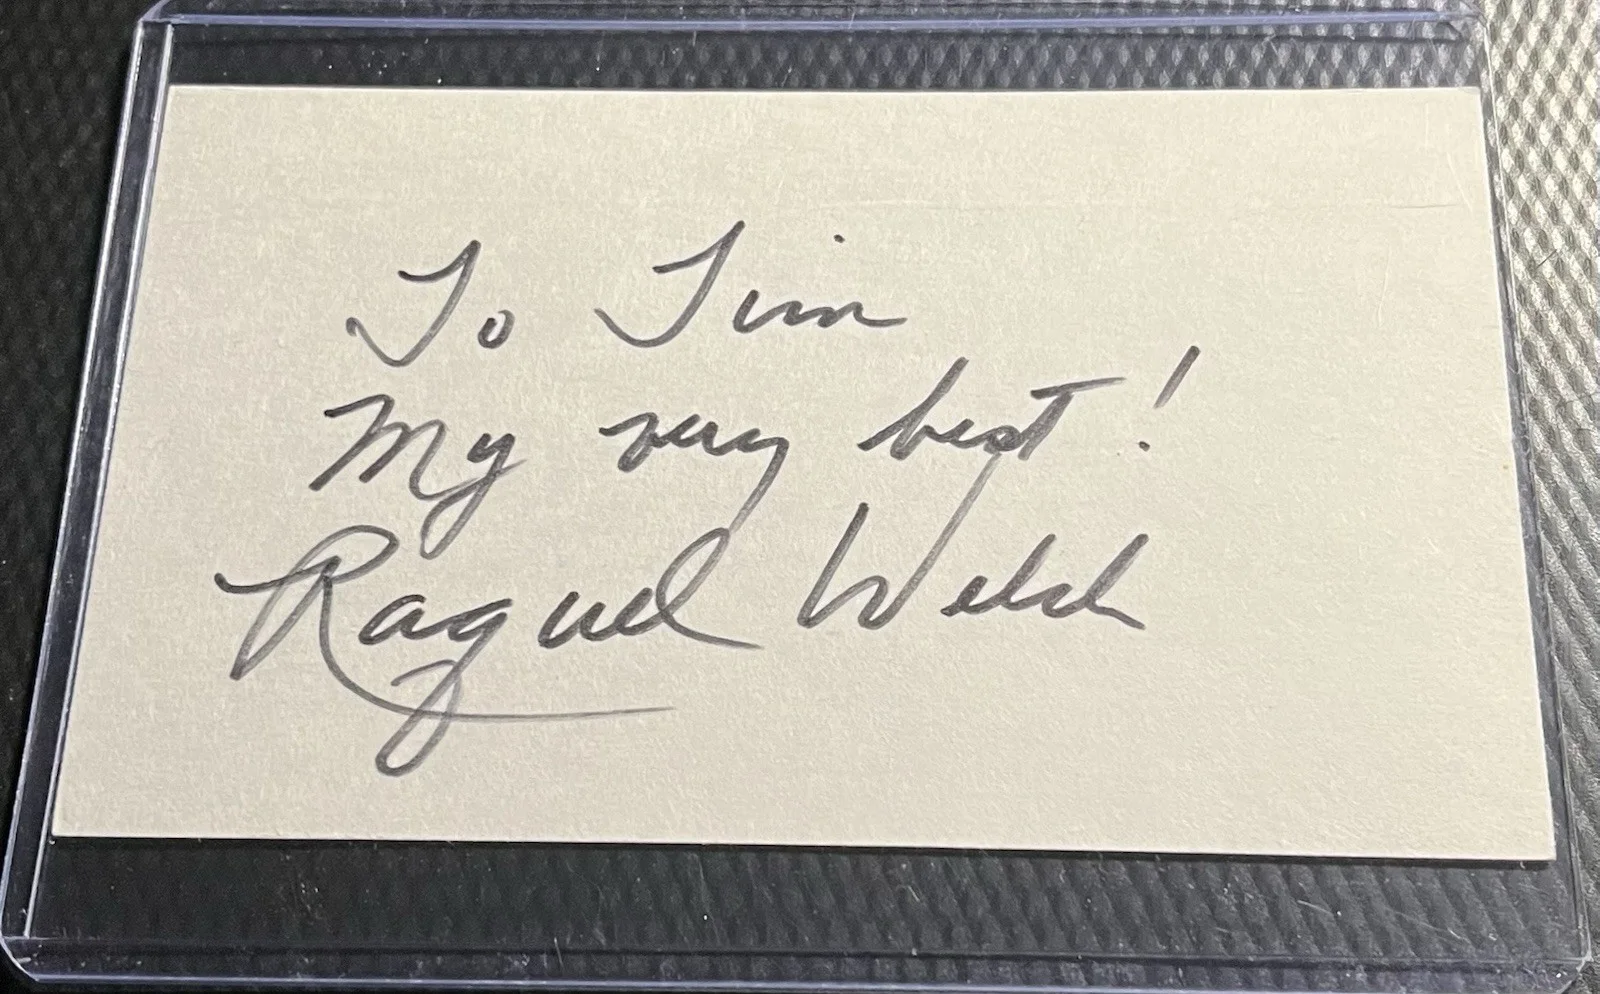 To Tim
My very best!
Raquel Welch